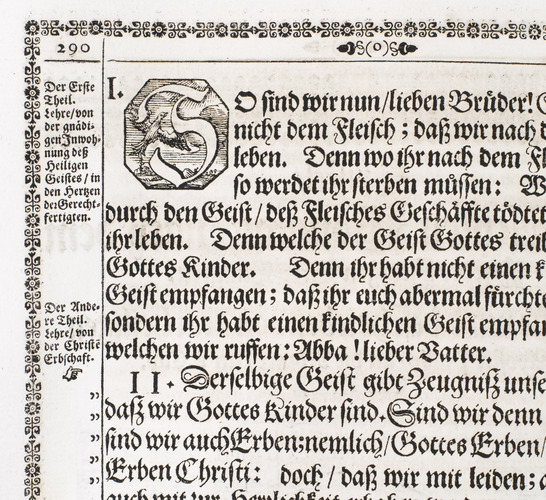 290
(o)
Der Erste
Theil.
Lehre/von
der gnädi-
gen Inwoh-
nung deß
Heiligen
Geistes / in
den Hertzen
der Gerecht-
fertigten.
I.
SO sind wir nun/lieben Brüder!
nicht dem Fleisch ; daß wir nach
leben. Denn wo ihr nach dem
so werdet ihr sterben müssen:
durch den Geist / deß Fleisches Geschäffte tödtet
ihr leben. Denn welche der Geist Gottes
Gottes Kinder. Denn ihr habt nicht einen
Geist empfangen ; daß ihr euch abermal
sondern ihr habt einen kindlichen Geist
welchen wir ruffen: Abba ! lieber Vatter.
Der Ande-
re Theil.
Lehre/ von
der Christē
Erbschafft.
II. Derselbige Geist gibt Zeugniß
„ daß wir Gottes Kinder sind. Sind wir denn
„ sind wir auch Erben; nemlich/Gottes Erben/
„ Erben Christi: doch / daß wir mit leiden;
„ auch mit zur Herrlichkeit